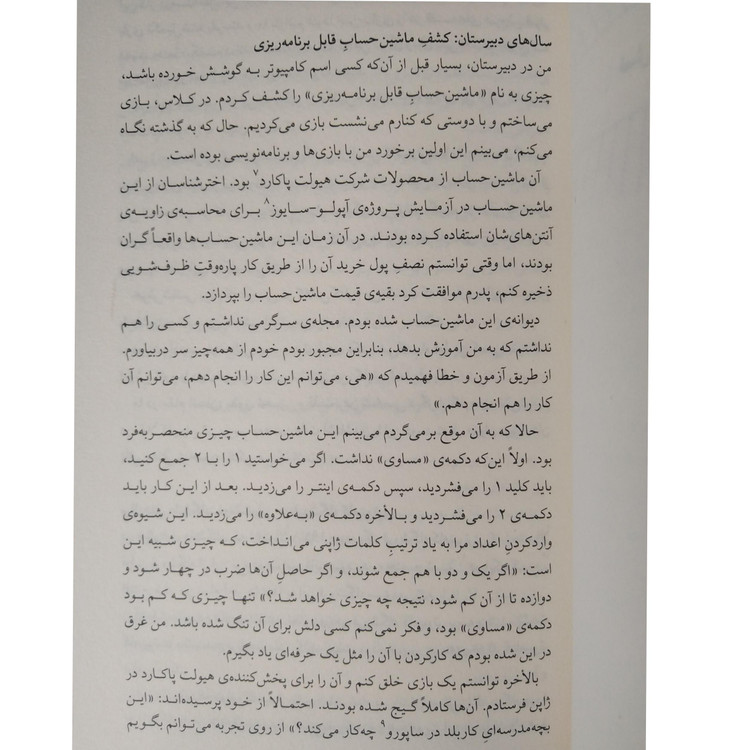 سال‌های دبیرستان: کشفِ ماشین‌حسابِ قابل برنامه‌ریزی
من در دبیرستان، بسیار قبل از آن‌که کسی اسم کامپیوتر به گوشش خورده باشد،
چیزی به نام «ماشین‌حسابِ قابل برنامه‌ریزی» را کشف کردم. در کلاس، بازی
می‌ساختم و با دوستی که کنارم می‌نشست بازی می‌کردیم. حال که به گذشته نگاه
می‌کنم، می‌بینم این اولین برخورد من با بازی‌ها و برنامه‌نویسی بوده است.
آن ماشین‌حساب از محصولات شرکت هیولت پاکارد۷ بود. اخترشناسان از این
ماشین‌حساب در آزمایش پروژه‌ی آپولو-سایوز۸ برای محاسبه‌ی زاویه‌ی
آنتن‌های‌شان استفاده کرده بودند. در آن زمان این ماشین‌حساب‌ها واقعاً گران
بودند، اما وقتی توانستم نصفِ پول خرید آن را از طریق کار پاره‌وقتِ ظرف‌شویی
ذخیره کنم، پدرم موافقت کرد بقیه‌ی قیمت ماشین‌حساب را بپردازد.
دیوانه‌ی این ماشین‌حساب شده بودم. مجله‌ی سرگرمی نداشتم و کسی را هم
نداشتم که به من آموزش بدهد، بنابراین مجبور بودم خودم از همه‌چیز سر دربیاورم.
از طریق آزمون و خطا فهمیدم که «هی، می‌توانم این کار را انجام دهم، می‌توانم آن
کار را هم انجام دهم.»
حالا که به آن موقع برمی‌گردم می‌بینم این ماشین‌حساب چیزی منحصربه‌فرد
بود. اولاً این‌که دکمه‌ی «مساوی» نداشت. اگر می‌خواستید ۱ را با ۲ جمع کنید،
باید کلید ۱ را می‌فشردید، سپس دکمه‌ی اینتر را می‌زدید. بعد از این کار باید
دکمه‌ی ۲ را می‌فشردید و بالأخره دکمه‌ی «به‌علاوه» را می‌زدید. این شیوه‌ی
واردکردنِ اعداد مرا به یاد ترتیبِ کلمات ژاپنی می‌انداخت، که چیزی شبیه این
است: «اگر یک و دو با هم جمع شوند، و اگر حاصلِ آن‌ها ضرب در چهار شود و
دوازده تا از آن کم شود، نتیجه چه چیزی خواهد شد؟» تنها چیزی که کم بود
دکمه‌ی «مساوی» بود، و فکر نمی‌کنم کسی دلش برای آن تنگ شده باشد. من غرق
در این شده بودم که کارکردن با آن را مثل یک حرفه‌ای یاد بگیرم.
بالأخره توانستم یک بازی خلق کنم و آن را برای پخش‌کننده‌ی هیولت پاکارد در
ژاپن فرستادم. آن‌ها کاملاً گیج شده بودند. احتمالاً از خود پرسیده‌اند: «این
بچه‌مدرسه‌ایِ کاربلد در ساپورو۹ چه‌کار می‌کند؟» از روی تجربه می‌توانم بگویم